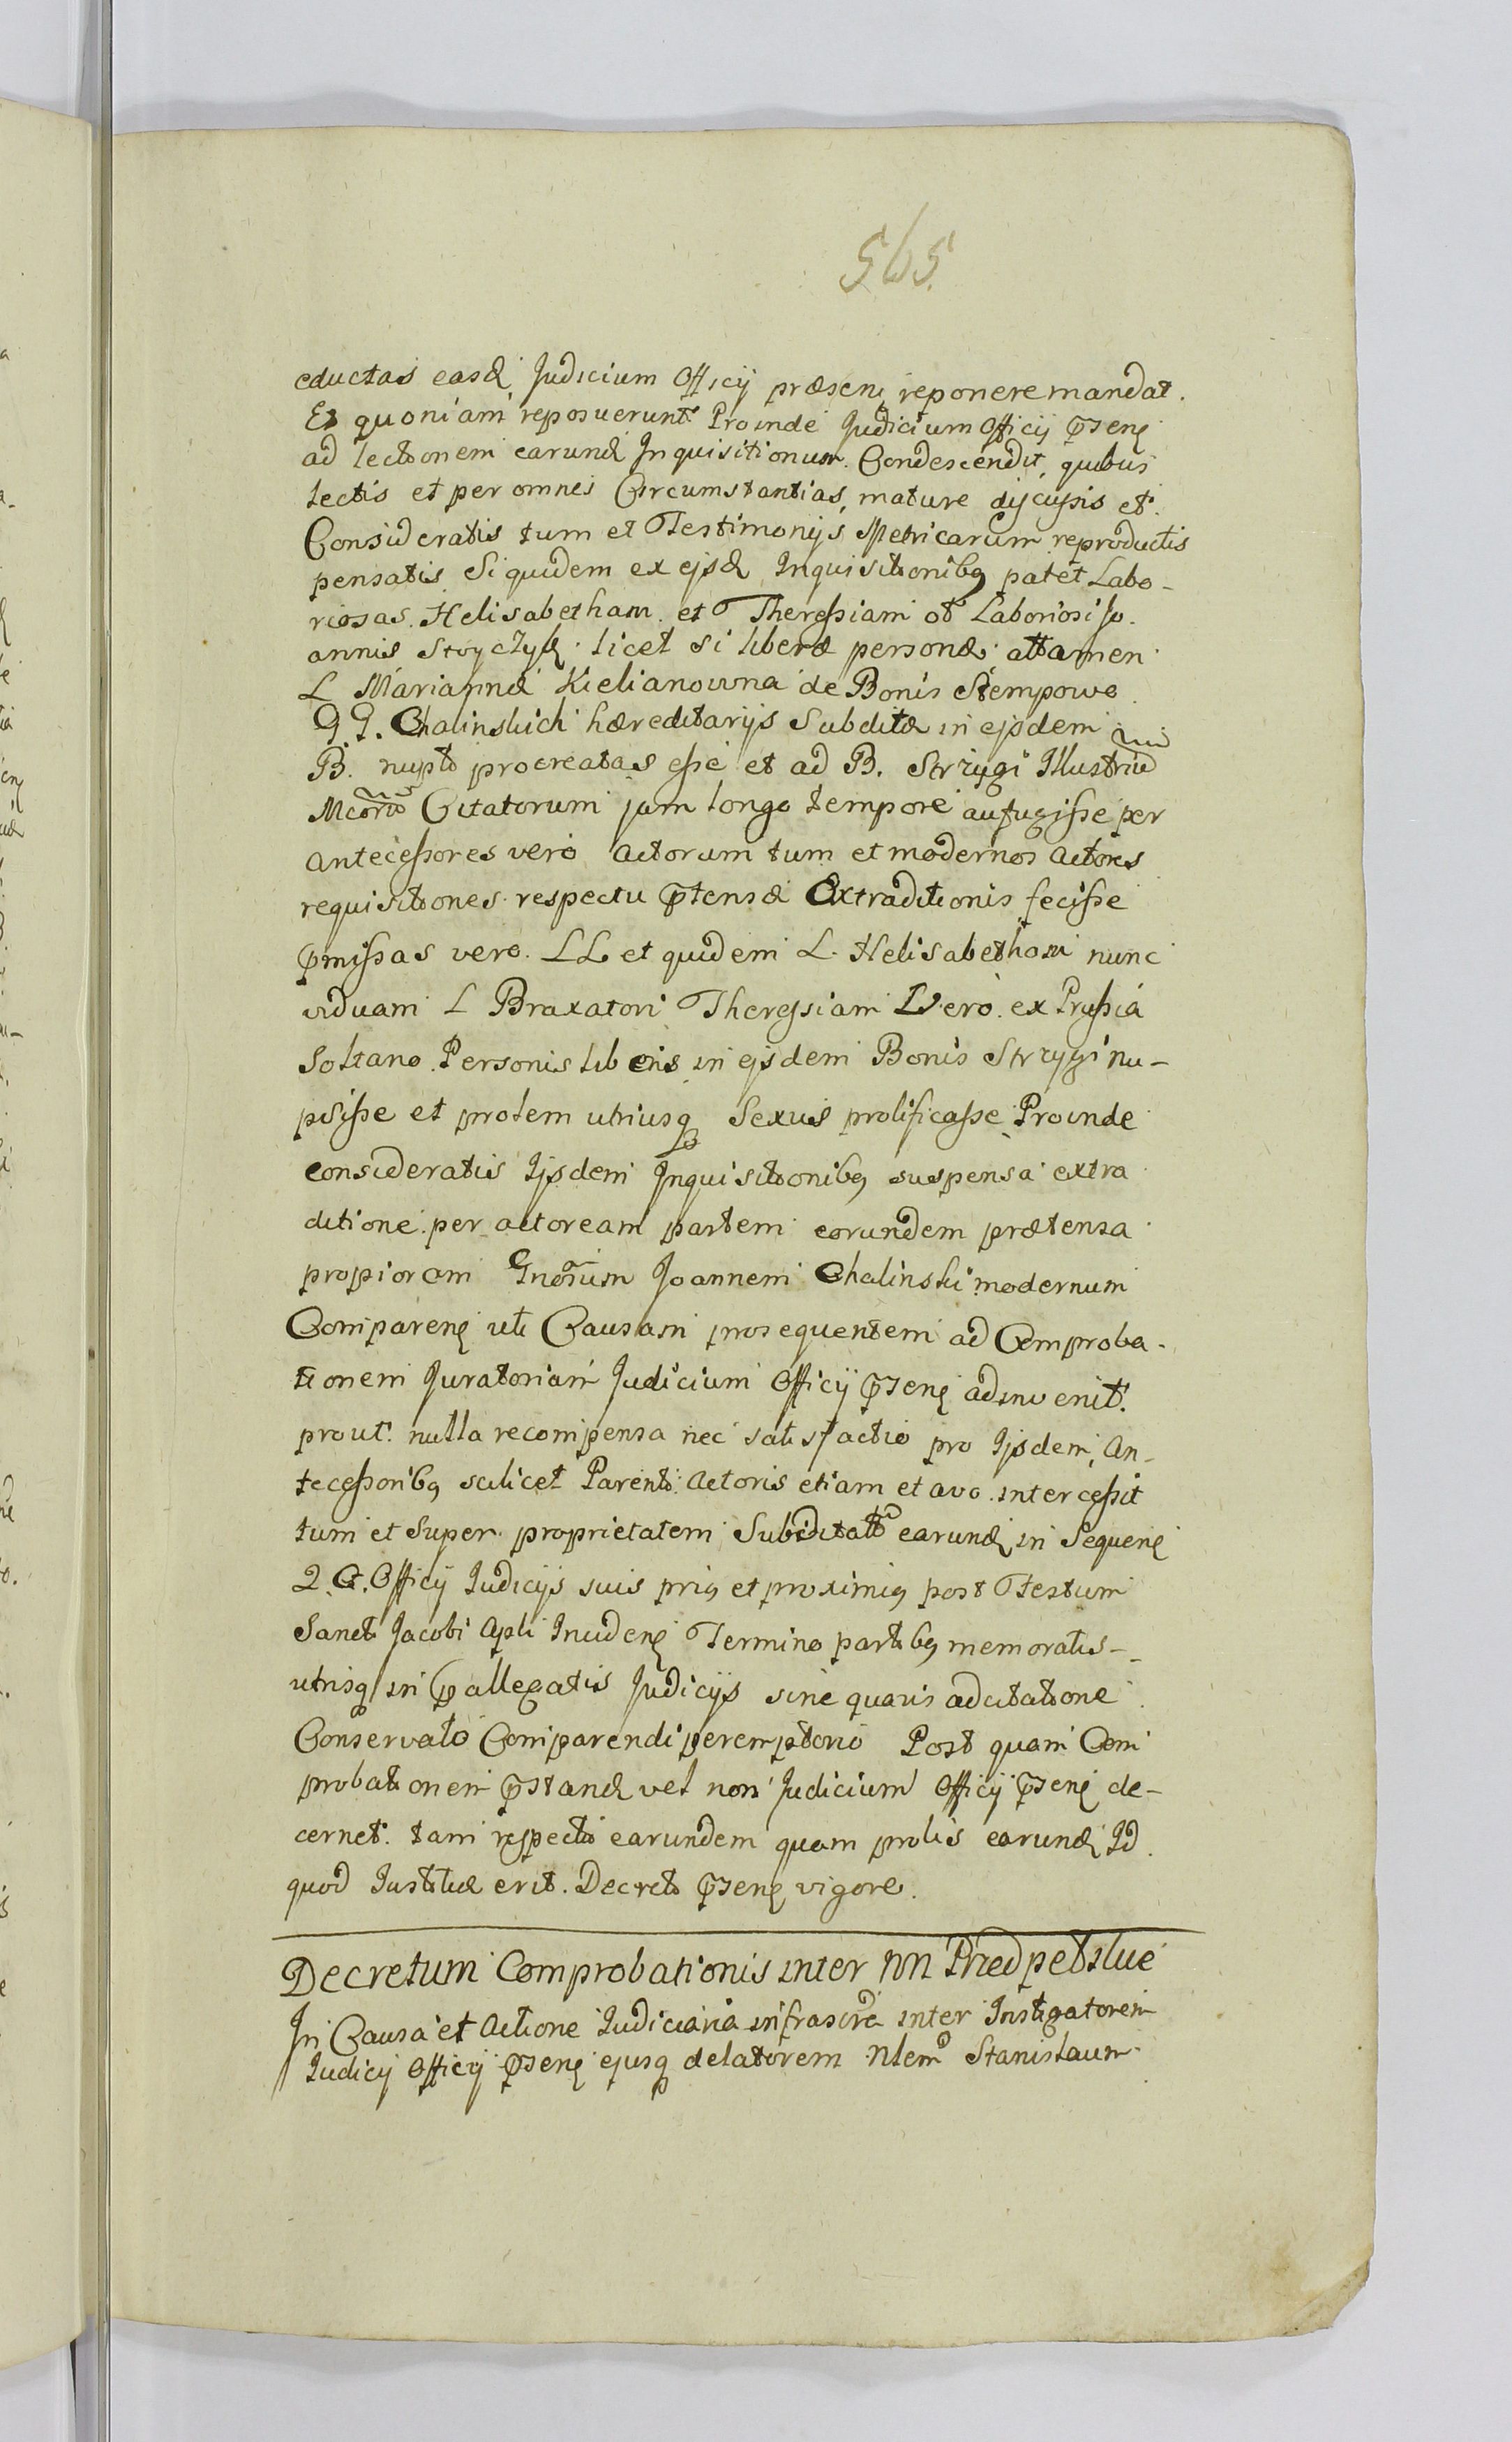 565
eductas easd Judicium Officij præsens reponere mandat.
Et quoniam reposuerunt Proinde Judicium Officij pnsens
ad lectionem earund Inquisitionum Condescendit, quibus
lectis et per omnes Circumstantias, mature discussis et
Consideratis tum et Testimonijs Metricarum reproductis
pensatis Siquidem ex ejsd Inquisitionibq patet Labo-
riosas Helisabetham et Theressiam ob Laboriosi Jo-
annis licet si liberæ personæ attamen
L Mariannæ Kielianowna de Bonis Stempowo
GG. Chalinskich hæreditarijs Subditæ in ejsdem
B. nupto procreatas esse et ad B. Strzygi Illustriu
Mcorum Citatorum jam longo tempore aufugisse per
antecessores vero Actorum tum et modernos Actores
requisitiones respectu ptensæ Extraditionis fecisse
pmissas vero LL et quidem L. Helisabetham nunc
viduam L Braxatori Theressiam Vero ex Prussia
Soltano Personis liberis in ejsdem Bonis Strzygi nu-
psisse et prolem utriusq Sexus prolificasse Proinde
consideratis Ijsdem Inquisitionibq suspensa extra
ditione per actoream partem eorundem prætensa
propiorem Gnosum Joannem Chalinski modernum
Comparens uti Causam prosequentem ad Comproba-
tionem Juratoriam Judicium Officij psens adinvenit.
prout nulla recompensa nec satisfactio pro Ijsdem An-
tecessoribq scilicet Parenti Actoris etiam et avo intercessit
tum et Super proprietatem Subditatt earund in Sequens
2. G. Officij Judicijs suis priq et proximiq post Festum
Sancti Jacobi Apli Incidens Termino partibq memoratis-
utrisq in pallegatis Judicijs sine quavis adcitatione
Conservato Comparendi peremptorio Post quam Com
probationem pstand vel non Judicium Officij psens de-
cernet tam respectu earundem quam prolis earund Id
quod Justitiæ erit. Decreti psens vigore.
Decretum Comprobationis inter NN Przedpelskie
In Causa et Actione Judiciaria infrascra inter Instigatorem
Judicij Officij psens ejusq delatorem Nlem Stanislaum